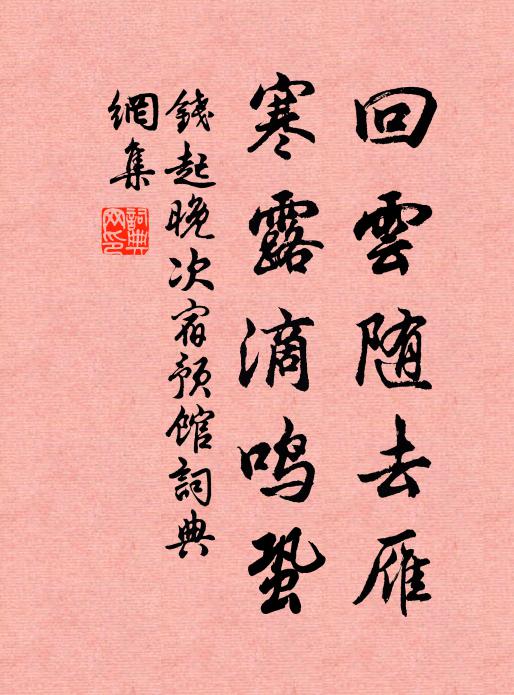 回雲随去雁
寒露滴鳴蛩
錢起晚次宿預館詞典
網集
詞典
网印